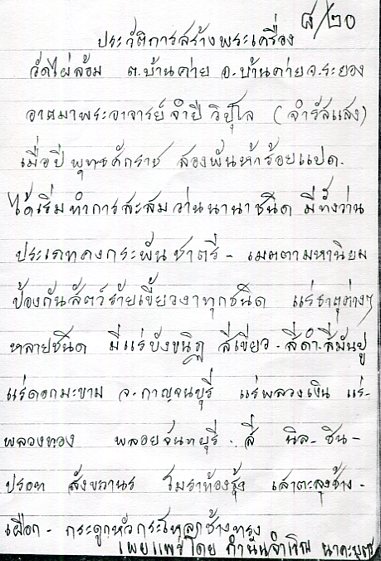 ๘/๒๐
ประวัติการสร้างพระเครื่อง
วัดไผ่ล้อม ต.บ้านค่าย อ.บ้านค่าย จ.ระยอง
อาตมาพระอาจารย์จำปี วิปุโล (จำรัสแสง)
เมื่อปี พุทธศักราช สองพันห้าร้อยแปด.
ได้เริ่มทำการสะสมว่านนานาชนิด มีทั้งว่าน
ประเภทคงกระพันชาตรี - เมตตามหานิยม
ป้องกันสัตว์ร้ายเขี้ยวงาทุกชนิด แร่ธาตุต่างๆ
หลายชนิด มีแร่บังขนิฏ สีเขียว - สีดำ. สีมันปู
แร่ดอกมะขาม จ-กาญจนบุรี แร่พลวงเงิน แร่-
พลวงทอง พลอยจันทบุรี - สี นิล - ชิน -
ปรอท สังขวานร โมราท้องรุ้ง เสาตะลุงช้าง-
เผือก - กระดูกหัวกระโหลกช้างทรง
เผยแพร่โดย กำนันจำเริญ